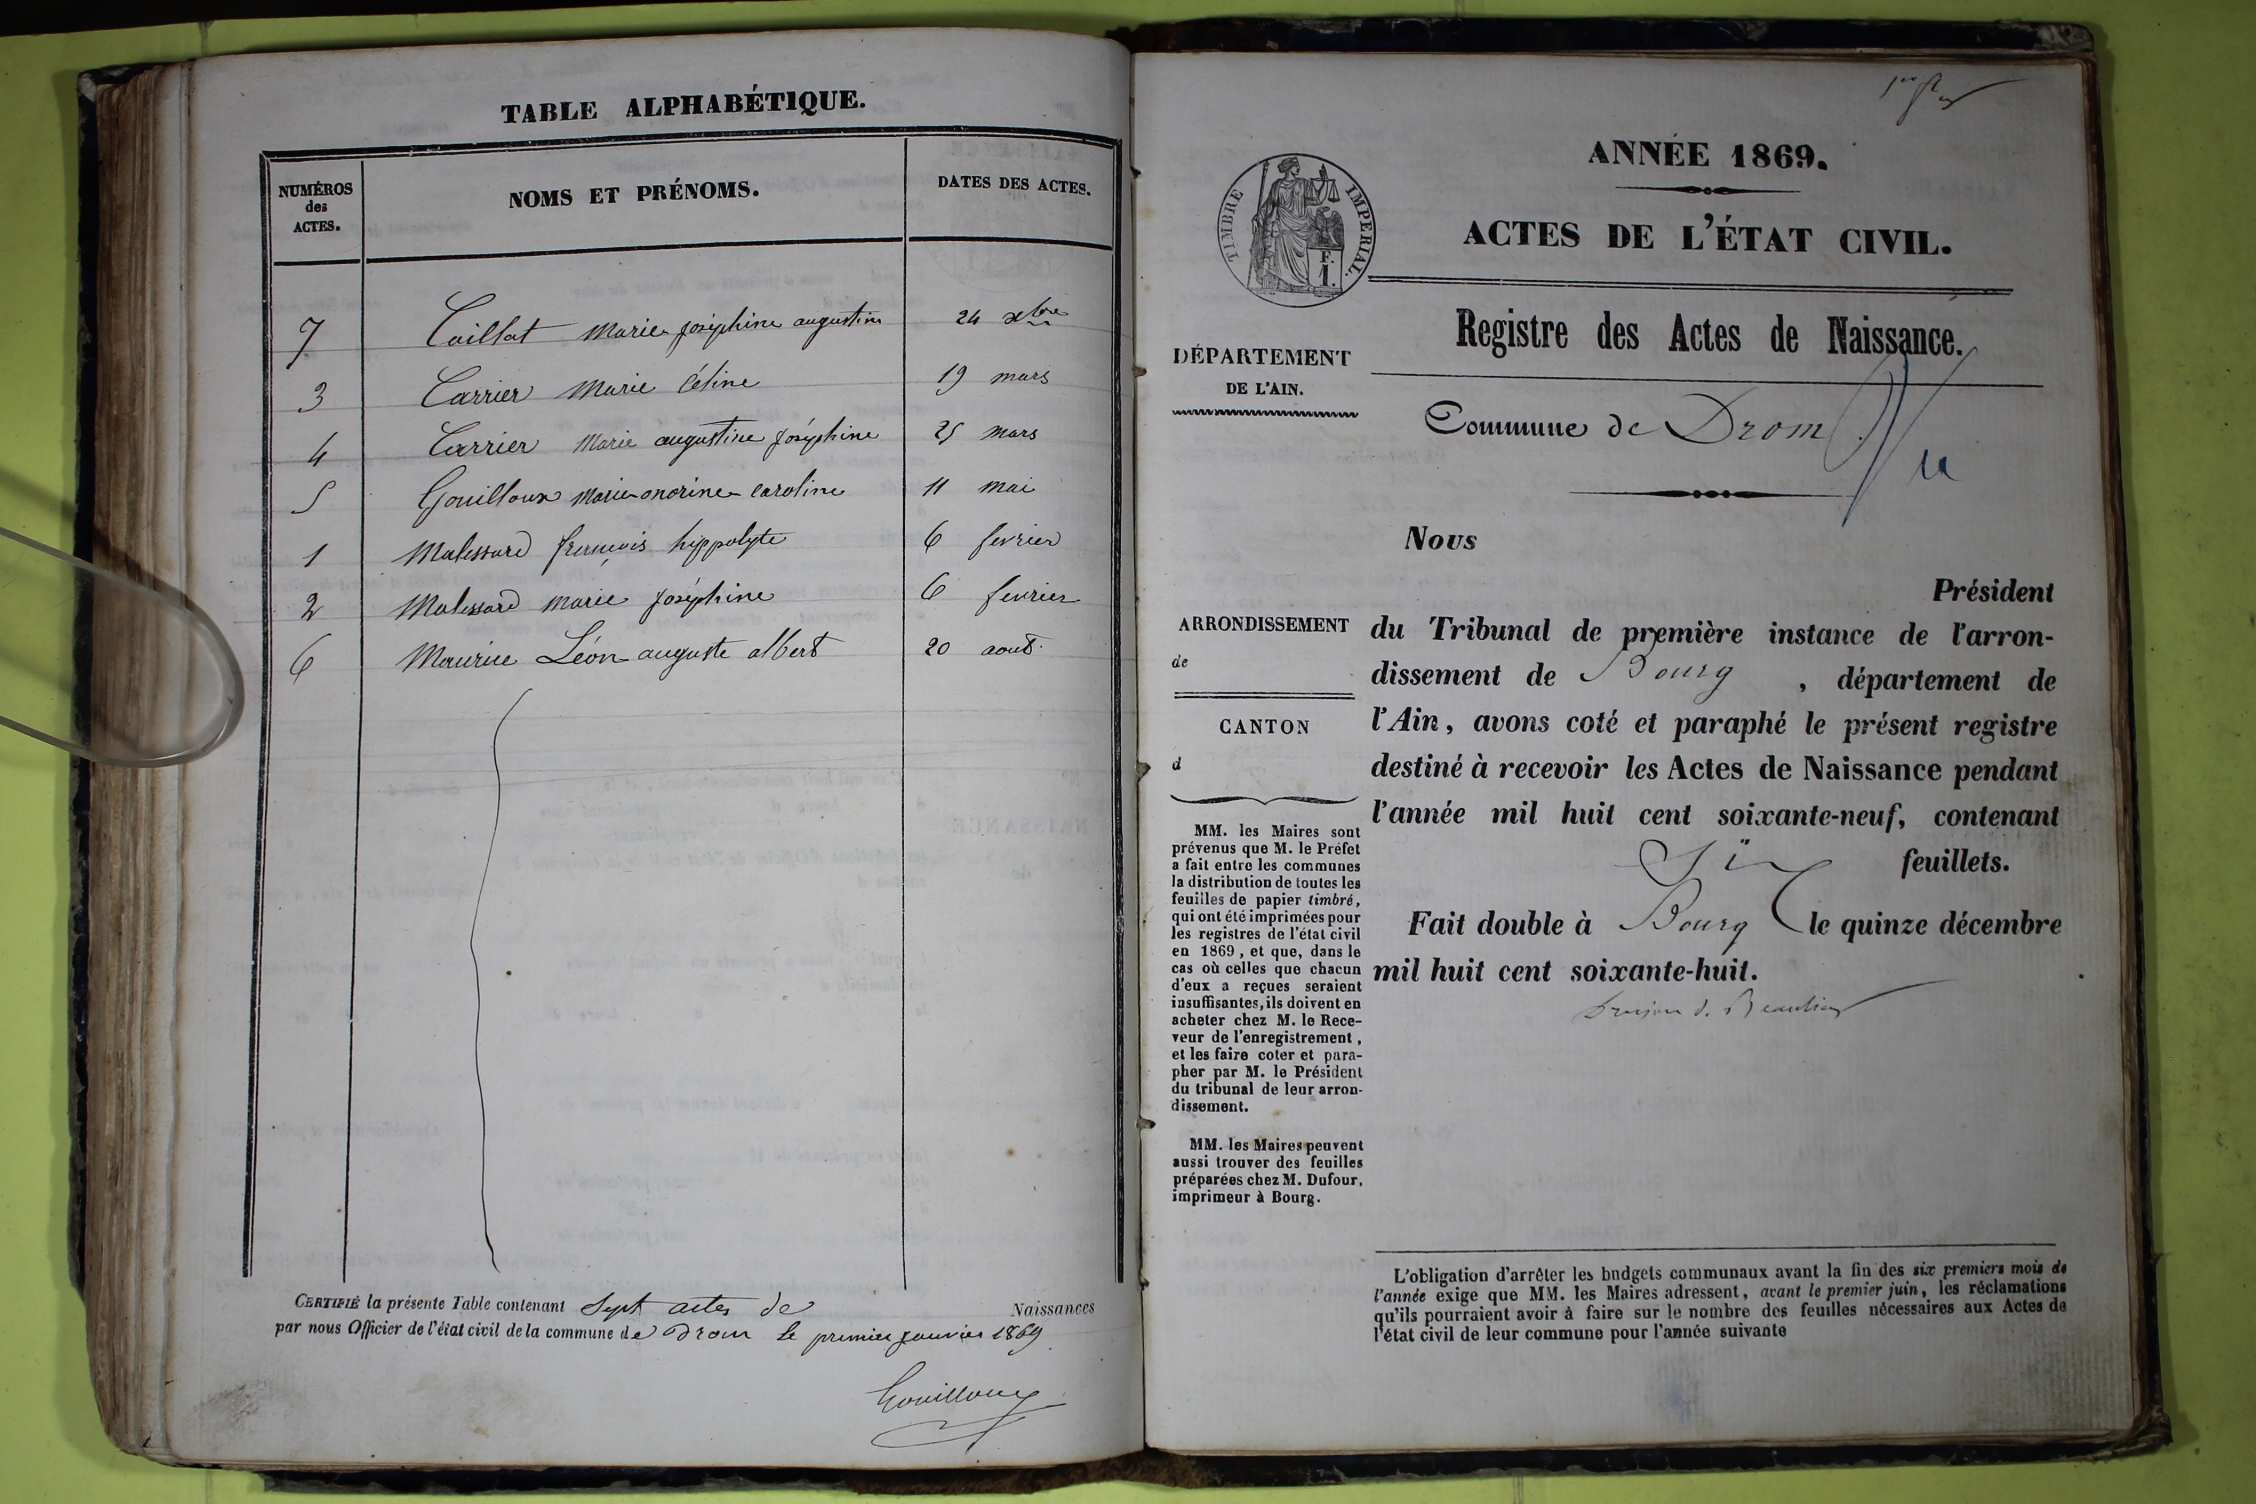 TABLE ALPHABÉTIQUE.
NUMÉROS des ACTES.
NOMS ET PRÉNOMS.
DATES DES ACTES.
7 Caillat Marie Joséphine augustine 24 xbre
3 Carrier Marie Céline 19 mars
4 Carrier Marie augustine Joséphine 25 mars
5 Gouilloux Marie onorine caroline 11 mai
1 Malessard françois hippolyte 6 fevrier
2 Malessard marie Joséphine 6 fevrier
6 Maurice Léon auguste albert 20 aout.
CERTIFIÉ la présente Table contenant Sept actes de Naissances
par nous Officier de l'état civil de la commune de Drom le premier janvier 1869
Gouilloux
ANNÉE 1869.
ACTES DE L'ÉTAT CIVIL.
TIMBRE IMPÉRIAL.
F.
1.
Registre des Actes de Naissance.
DÉPARTEMENT
DE L'AIN.
Commune de Drom
Vu
Nous
Président
du Tribunal de première instance de l'arron-
dissement de Bourg , département de
l'Ain, avons coté et paraphé le présent registre
destiné à recevoir les Actes de Naissance pendant
l'année mil huit cent soixante-neuf, contenant
Six feuillets.
Fait double à Bourg le quinze décembre
mil huit cent soixante-huit.
ARRONDISSEMENT
de
CANTON
d
MM. les Maires sont
prévenus que M. le Préfet
a fait entre les communes
la distribution de toutes les
feuilles de papier timbré,
qui ont été imprimées pour
les registres de l'état civil
en 1869, et que, dans le
cas où celles que chacun
d'eux a reçues seraient
insuffisantes, ils doivent en
acheter chez M. le Rece-
veur de l'enregistrement,
et les faire coter et para-
pher par M. le Président
du tribunal de leur arron-
dissement.
MM. les Maires peuvent
aussi trouver des feuilles
préparées chez M. Dufour,
imprimeur à Bourg.
L'obligation d'arrêter les budgets communaux avant la fin des six premiers mois de
l'année exige que MM. les Maires adressent, avant le premier juin, les réclamations
qu'ils pourraient avoir à faire sur le nombre des feuilles nécessaires aux Actes de
l'état civil de leur commune pour l'année suivante